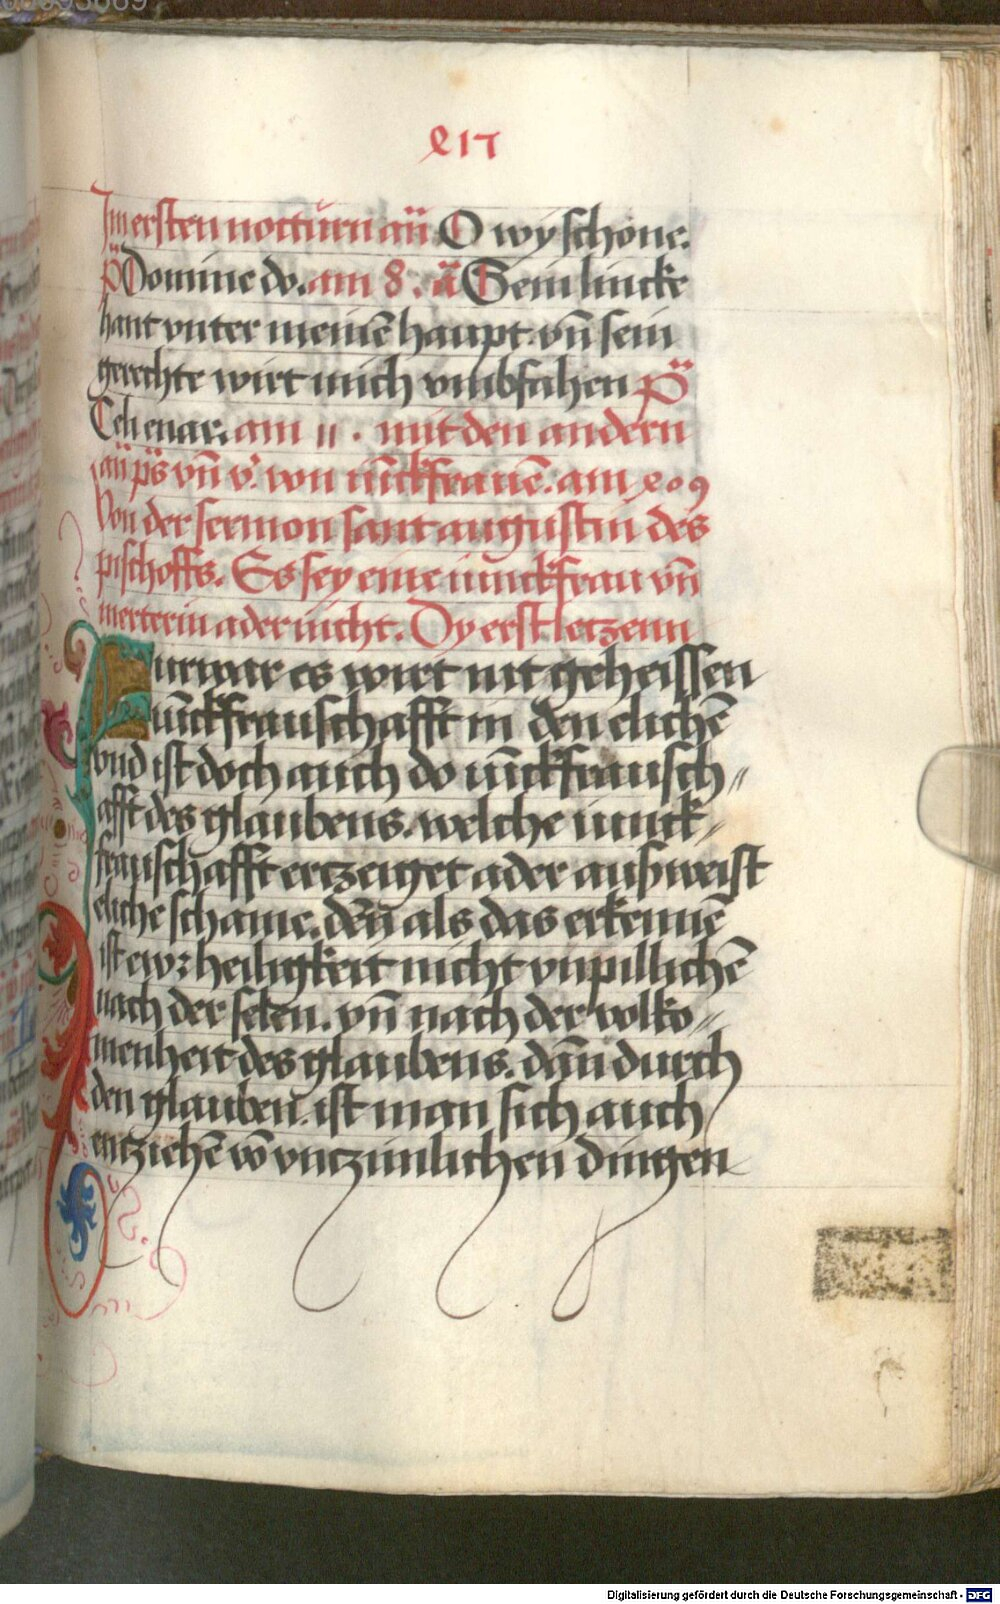 217
Im ersten nocturn añ O wy schone.
p̈s Domine do. am 8. ä Sein lincke
hant vnter meinē haupt. vn̄ sein
gerechte wirt mich vmbfahen p̈s
Celi enar. am 11. mit den andern
añ p̈s vn̄ v̓. von iūckfrauē. am 209
Von der sermon sant augustin des
pischoffs. Es sey eine iunckfrau vn̄
merterin ader nicht. Dy erst letzenn
Furwar es wirt nit geheissen
iūckfrauschafft in den elichē
vnd ist doch auch do iūckfrausch//
afft des glaubens. welche iunck//
frauschafft ertzeiget ader außweist
eliche schame. dēn als das erkennē
ist ewr heiligkeit nicht vnpillichē
nach der selen. vn̄ nach der volko//
menheit des glaubens. dān durch
den glauben. ist man sich auch
entziehē vō vntzimlichen dingen
Digitalisierung gefördert durch die Deutsche Forschungsgemeinschaft - DFG